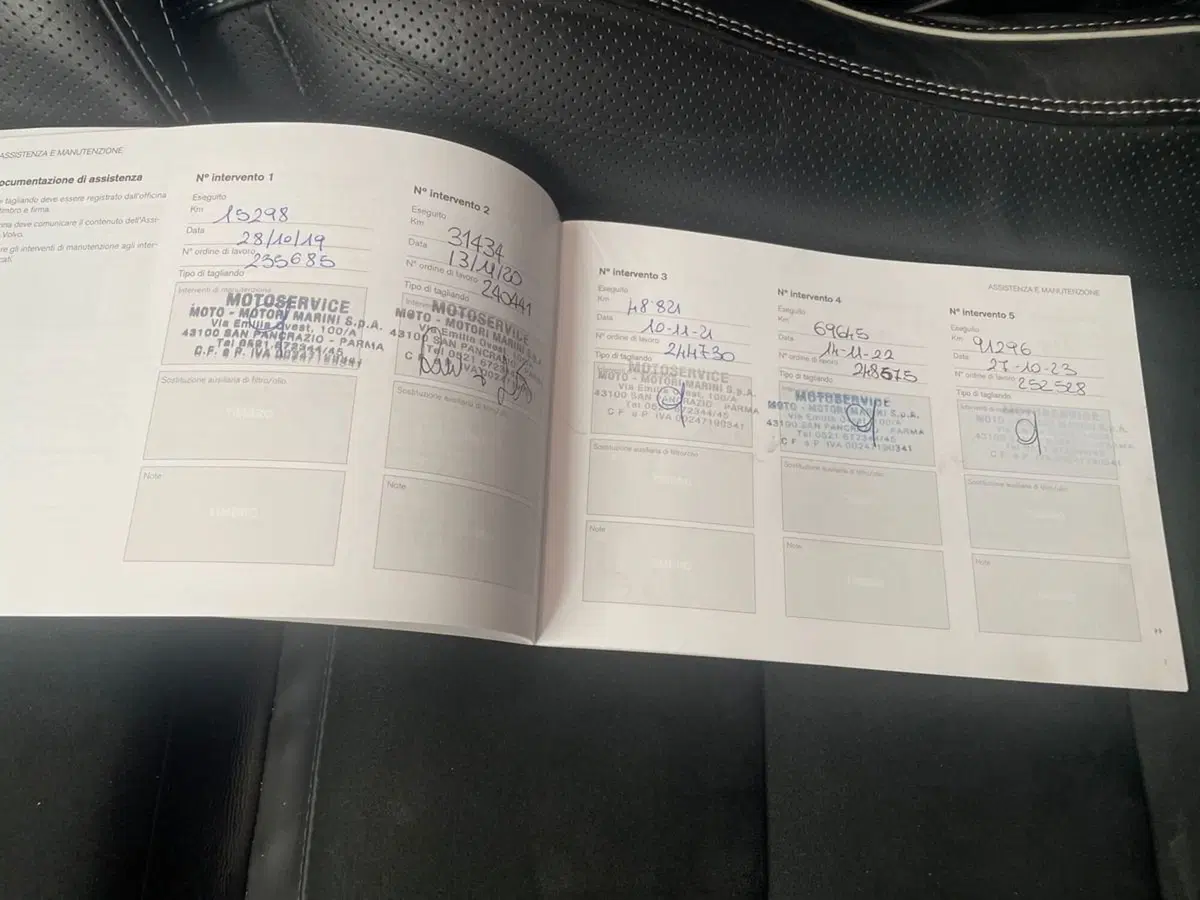 ASSISTENZA E MANUTENZIONE
ocumentazione di assistenza
tagliando deve essere registrato dall'officina
timbro e firma.
deve comunicare il contenuto dell'Assi-
Volvo.
re gli interventi di manutenzione agli inter-
cati.
N° intervento 1
Eseguito
Km 15298
Data 28/10/19
N° ordine di lavoro 235685
Tipo di tagliando
Interventi di manutenzione
MOTOSERVICE
MOTO - MOTORI MARINI S.p.A.
Via Emilia Ovest, 100/A
43100 SAN PANCRAZIO - PARMA
Tel 0521 672344/45
C.F. e P. IVA 00247190341
Sostituzione ausiliaria di filtro/olio
Note
N° intervento 2
Eseguito
Km 31434
Data 13/11/20
N° ordine di lavoro 240441
Tipo di tagliando
MOTOSERVICE
MOTO - MOTORI MARINI S.p.A.
Via Emilia Ovest
43100 SAN PANCRA
Tel 0521 6723
Sostituzione ausiliaria di filtro/olio
Note
N° intervento 3
Eseguito
Km 48821
Data 10-11-21
N° ordine di lavoro 244730
Tipo di tagliando
MOTOSERVICE
MOTO - MOTORI MARINI S.p.A.
Via Emilia Ovest, 100/A
43100 SAN PANCRAZIO - PARMA
Tel 0521 672344/45
C.F. e P. IVA 00247190341
Sostituzione ausiliaria di filtro/olio
Note
ASSISTENZA E MANUTENZIONE
N° intervento 4
Eseguito
Km 69645
Data 14-11-22
N° ordine di lavoro 248575
Tipo di tagliando
MOTOSERVICE
MOTO - MOTORI MARINI S.p.A.
Via Emilia Ovest, 100/A
43100 SAN PANCRAZIO - PARMA
Tel 0521 672344/45
C.F. e P. IVA 00247190341
Sostituzione ausiliaria di filtro/olio
Note
N° intervento 5
Eseguito
Km 91296
Data 27-10-23
N° ordine di lavoro 252528
Tipo di tagliando
MOTO
43100
Sostituzione ausiliaria di filtro/olio
Note